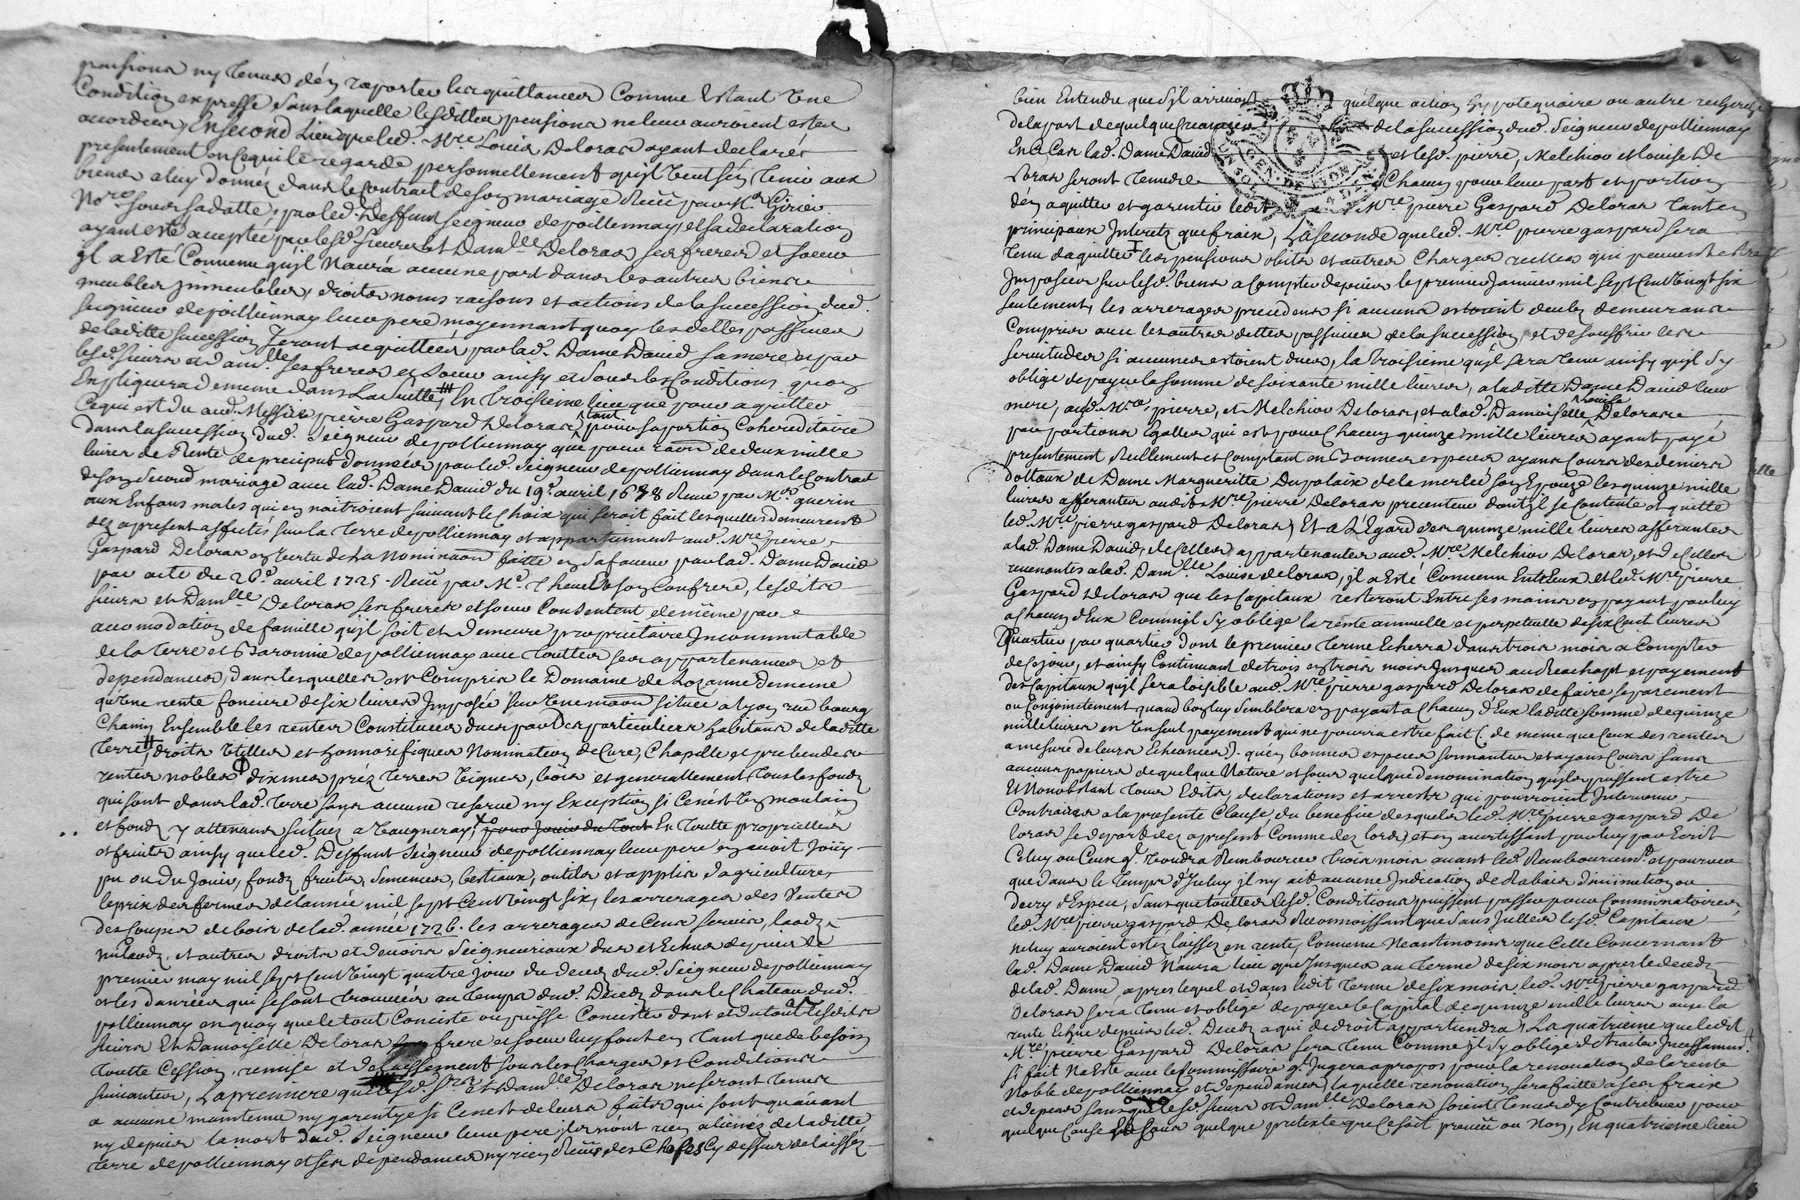 pensions ny tenus d'en raporter les quittances Comme Estant Une
Condition expresse sans laquelle lesdittes pensions ne leur auroient estes
accordees, En second Lieu que led. Mre Louis Deloras ayant declarés
presentement en ce qui le regarde personnellement qu'il veut s'en tenir aux
biens a luy donnéz dans le Contrat de son mariage Receu par Me
Nore sous sa datte, par led. Deffunt seigneur de polliennay, et sa declaration
ayant esté acceptée par lesd. sieurs et Damlle Deloras ses freres et soeur
Jl a Esté Convenu qu'il N'aura aucune part dans les autres biens
meubles jmmeubles, droits noms raisons et actions de la succession dud.
seigneur de polliennay leur pere moyennant quoy les dettes passives
de laditte succession seront acquittées par lad. Dame David sa mere et par
lesd. sieurs et damlle ses freres et soeur ainsy et sous les Conditions qu'on
Expliquera de meme dans La suitte, En troisieme lieu que pour acquitter
Ce qui est Du aud. Messire pierre Gaspard Deloras tant pour sa portion Cohereditaire
dans la succession dud. Seigneur de polliennay que pour raon de deux mille
livres de Rente de preciput données par led. Seigneur de polliennay dans le Contrat
de son second mariage avec lad. Dame David du 19e avril 1678 Receu par Me guerin
aux Enfans males qui en naitroient suivant le Choix qui seroit fait lesquelles demeurent
dez apresent affectés sur la Terre de polliennay et appartiennent aud. Mre pierre
Gaspard Deloras en Vertu de La Nominaon faitte en sa faveur par lad. Dame David
par acte du 26e avril 1725 Receu par Me Thevenet son Confrere, lesdits
sieurs et Damlle Deloras ses freres et soeur Consentent de meme par
acomodation de famille qu'il soit et Demeure proprietaire Jncommutable
de la Terre et Baronnie de polliennay avec Touttes ses appartenances et
dependances, dans lesquelles est Compris le Domaine de Lozanne De meme
qu'une rente fonciere de six livres Jmposée sur Une maon située a Lyon rue bourg
Chanin Ensemble les rentes Constituées dues par des particuliers habitans de laditte
Terre, droits Utilles et honnorifiques Nomination de Cure, Chapelle et prebendes
rentes nobles dixmes préz terres Vignes, bois et generallement tous les fonds
qui sont dans lad. Terre sans aucune reserve ny Exception si Ce n'est Un moulain
et fonds y attenans situez a Vaugneray, pour Jouir du Tout En Toutte proprietés
et fruits ainsy que led. Deffunt Seigneur de polliennay leur pere en avoit Joüy
pu ou Du Jouir, fonds fruits, semences, bestiaux, outils et applis d'agriculture,
le prix des fermes de l'année mil sept Cent Vingt six, les arrerages des Ventes
des coupes de bois de lad. année 1726. les arrerages de Cens servis, laods
milaods, et autres droits et devoirs Seigneuriaux dus et Echus depuis le
premier may mil sept Cent Vingt quatre jour du deces dud. Seigneur de polliennay
et les danrées qui se sont trouvées au temps dud. Decez dans le Chateau dud.
polliennay en quoy que le tout Conciste ou puisse Concister dont et du tout lesdits
sieurs Et Damoiselle Deloras frere et soeur luy font en Tant que de besoin
toutte Cession, remise et delaissement sous les Charges et Conditions
suivantes, La premiere que lesd. Srs et Damlle Deloras ne seront tenus
a aucune maintenue ny garentye si Ce n'est de leurs faits qui sont qu'avant
ny depuis la mort dud. Seigneur leur pere jls n'ont rien alienéz de laditte
Terre de polliennay et ses dependances ny rien Receu des Choses Cy dessus delaissez
bien Entendre que s'il arrivoit quelque action hypotequaire ou autre recherche
de la part de quelque Creancier de la succession dud. Seigneur de polliennay
En ce Cas lad. Dame David et lesd. pierre, Melchior et Louise De
Loras seront tenues Chacun pour leur part et portion
d'en aquitter et garentir ledit Mre pierre Gaspard Deloras tant en
principaux Jnterets que fraix, La seconde que led. Mre pierre gaspard sera
tenu d'aquitter les pensions obits et autres Charges reelles qui peuvent estre
Jmposées sur lesd. biens a Compter depuis le premier Janvier mil sept Cent Vingt six
seulement, les arrerages precedens si aucuns estoient deubs demeurans
Compris avec les autres dettes passives de la succession, et de souffrir les
servitudes si aucunes estoient dues, la troisieme qu'il sera tenu ainsy qu'il s'y
oblige de payer la somme de soixante mille livres, a laditte Dame David leur
mere, aud. Mres pierre, et Melchior Deloras, et a lad. Damoiselle Louise Deloras
par portions Egalles qui est pour Chacun quinze mille livres ayant payé
presentement Reellement et Comptant en Bonnes especes ayans Cours des deniers
dottaux de Dame Margueritte Dupalais de la merlée son Epouze les quinze mille
livres afferantes audit Mre pierre Deloras presenteur dont jl se Contente et quitte
led. Mre pierre gaspard Deloras, Et a L'Egard des quinze mille livres afferantes
a lad. Dame David, de Celles appartenantes aud. Mre Melchior Deloras, et de Celles
revenantes a lad. Damlle Louise de loras, jl a Esté Convenu Entr'Eux et led. Mre pierre
Gaspard Deloras que les Capitaux resteront Entre ses mains en payant par luy
a Chacun d'Eux Comme jl s'y oblige la rente annuelle et perpetuelle de six Cent livres
Quartier par quartier dont le premier terme Echerra dans trois mois a Compter
de Ce jour, et ainsy Continuant de trois en trois mois Jusques au Reachapt et payement
des Capitaux qu'il sera loisible aud. Mre pierre gaspard Deloras de faire separement
ou Conjoinctement quand bon luy semblera en payant a Chacun d'Eux laditte somme de quinze
mille livres en Un seul payement qui ne pourra estre fait (de meme que Ceux des rentes
a mesure de leurs Echeances) qu'en bonnes especes sonnantes et ayans Cours sans
aucuns papiers de quelque Nature et sous quelque denomination qu'ils puissent estre
Et Nonobstant tous Edits, declarations et arrests qui pourroient Jntervenir
Contraires a la presente Clause, du benefice desquels led. Mre pierre gaspard De
loras se depart dez a present Comme dez lors, et en avertissant par luy par Ecrit
Celuy ou Ceux qu'il voudra Rembourcer trois mois avant led. Remboursemt et pourveu
que dans le temps d'Jceluy jl n'y ait aucune Jndication de Rabais diminution ou
decry d'Especes, sans que touttes lesd. Conditions puissent passer pour Comminatoires,
led. Mre pierre gaspard Deloras Reconnoissant que sans Jcelles lesd. Capitaux
ne luy auroient estez laissez en rente, Convenu Neantmoins que Celle Concernant
lad. Dame David N'aura lieu que Jusques au terme de six mois apres le decez
de lad. Dame, apres lequel et dans ledit terme de six mois led. Mre pierre gaspard
Deloras sera tenu et obligé de payer le Capital de quinze mille livres avec la
rente Echue depuis led. Decez a qui de droit appartiendra, La quatrieme que ledit
Mre pierre Gaspard Deloras sera tenu Comme jl s'y oblige de traiter Jncessament
si fait N'a Esté avec le Commissaire qu'il Jugera apropos pour la renovation de la rente
Noble de polliennay et dependances, laquelle renovation sera faitte a ses fraix
et depens sans que lesd. sieurs et Damlle Deloras soient tenus d'y Contribuer pour
quelque Cause Et sous quelque pretexte que Ce soit preveu ou Non, En quatrieme lieu
GEN. DE LYON